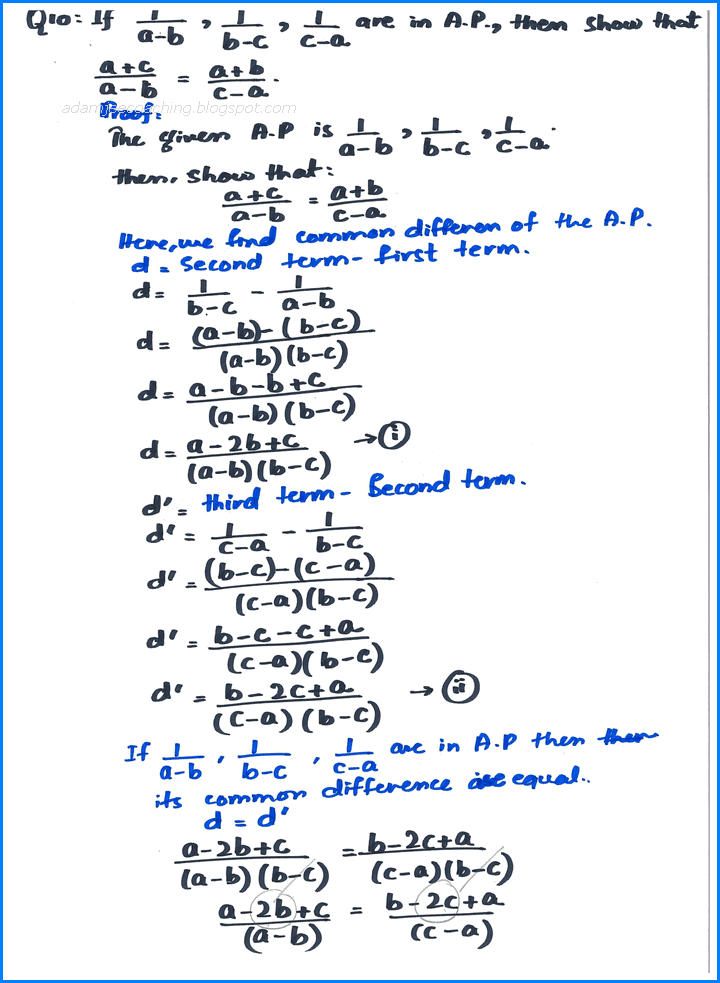 Q10: If 1/(a-b) , 1/(b-c) , 1/(c-a) are in A.P., then show that
(a+c)/(a-b) = (a+b)/(c-a).
adamjeecoaching.blogspot.com
Proof:
The given A.P is 1/(a-b) , 1/(b-c) , 1/(c-a).
then, show that:
(a+c)/(a-b) = (a+b)/(c-a)
Here, we find common differen of the A.P.
d = Second term - first term.
d = 1/(b-c) - 1/(a-b)
d = ((a-b)-(b-c))/((a-b)(b-c))
d = (a-b-b+c)/((a-b)(b-c))
d = (a-2b+c)/((a-b)(b-c)) → (i)
d' = third term - Second term.
d' = 1/(c-a) - 1/(b-c)
d' = ((b-c)-(c-a))/((c-a)(b-c))
d' = (b-c-c+a)/((c-a)(b-c))
d' = (b-2c+a)/((c-a)(b-c)) → (ii)
If 1/(a-b) , 1/(b-c) , 1/(c-a) are in A.P then then
its common difference are equal..
d = d'
(a-2b+c)/((a-b)(b-c)) = (b-2c+a)/((c-a)(b-c))
(a-2b+c)/(a-b) = (b-2c+a)/(c-a)